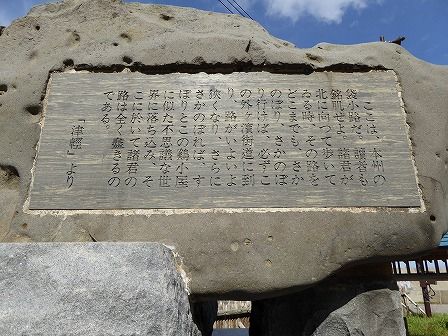 ここは、本州の
袋小路だ。讀者も
銘肌せよ。諸君が
北に向つて歩いて
ゐる時、その路を
どこまでも、さか
のぼり、さかのぼ
り行けば、必ずこ
の外ヶ濱街道に到
り、路がいよいよ
狹くなり、さらに
さかのぼれば、す
ぽりとこの鷄小屋
に似た不思議な世
界に落ち込み、そ
こに於いて諸君の
路は全く盡きるの
である。
「津輕」より